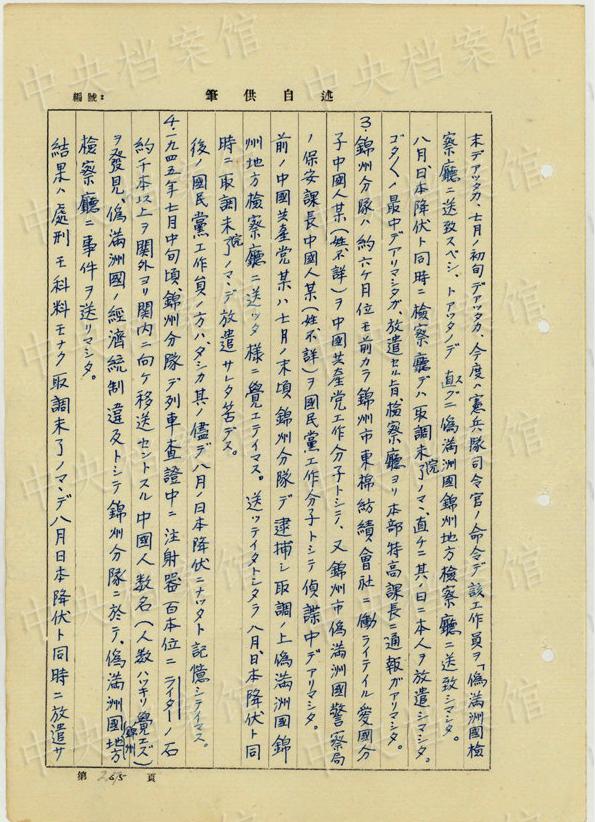 編號：
筆供自述
末デアツタカ、七月ノ初旬デアツタカ、今度ハ憲兵隊司令官ノ命令デ該工作員ヲ「偽満洲國檢
察廳ニ送致スベシ、トアツタノデ直スグニ偽満洲國錦州地方檢察廳ニ送致シマシタ。
八月、日本降伏ト同時ニ檢察廳デハ取調未了ノマヽ、直ケニ其ノ日ニ本人ヲ放遣シマシタ。
ゴタ〱ノ最中デアリマシタガ、放遣セル旨、檢察廳ヨリ本部特高課長ニ通報ガアリマシタ。
3. 錦州分隊ハ約六ケ月位モ前カラ錦州市東棉紡績會社ニ働ライテイル愛國分
子中國人某(姓不詳)ヲ中國共産党工作分子トシテ、又錦州市偽満洲國警察局
ノ保安課長中國人某(姓不詳)ヲ國民黨工作分子トシテ偵諜中デアリマシタ。
前ノ中國共産党某ハ七月ノ末頃錦州分隊デ逮捕シ取調ノ上偽満洲國錦
州地方檢察廳ニ送ツタ様ニ覺エテイマス。送ツテイタトシタラ八月、日本降伏ト同
時ニ取調未了ノマヽデ放遣サレタ筈デス。
後ノ國民黨工作員ノ方ハ、タシカ其ノ儘デ八月ノ日本降伏ニナツタト記憶シテイマス。
4. 一九四五年七月中旬頃、錦州分隊デ列車查證中ニ注射器百本位ニライターノ石
約千本以上ヲ関外ヨリ関内ニ向ケ移送セントスル中國人数名(人数ハツキリ覺エズ)
ヲ發見、偽満洲國ノ經濟統制違反トシテ錦州分隊ニ於テ、偽満洲國錦州地方
檢察廳ニ事件ヲ送リマシタ。
結果ハ處刑モ科料モナク取調未了ノマヽデ八月日本降伏ト同時ニ放遣サ
第 265 頁
中央档案馆